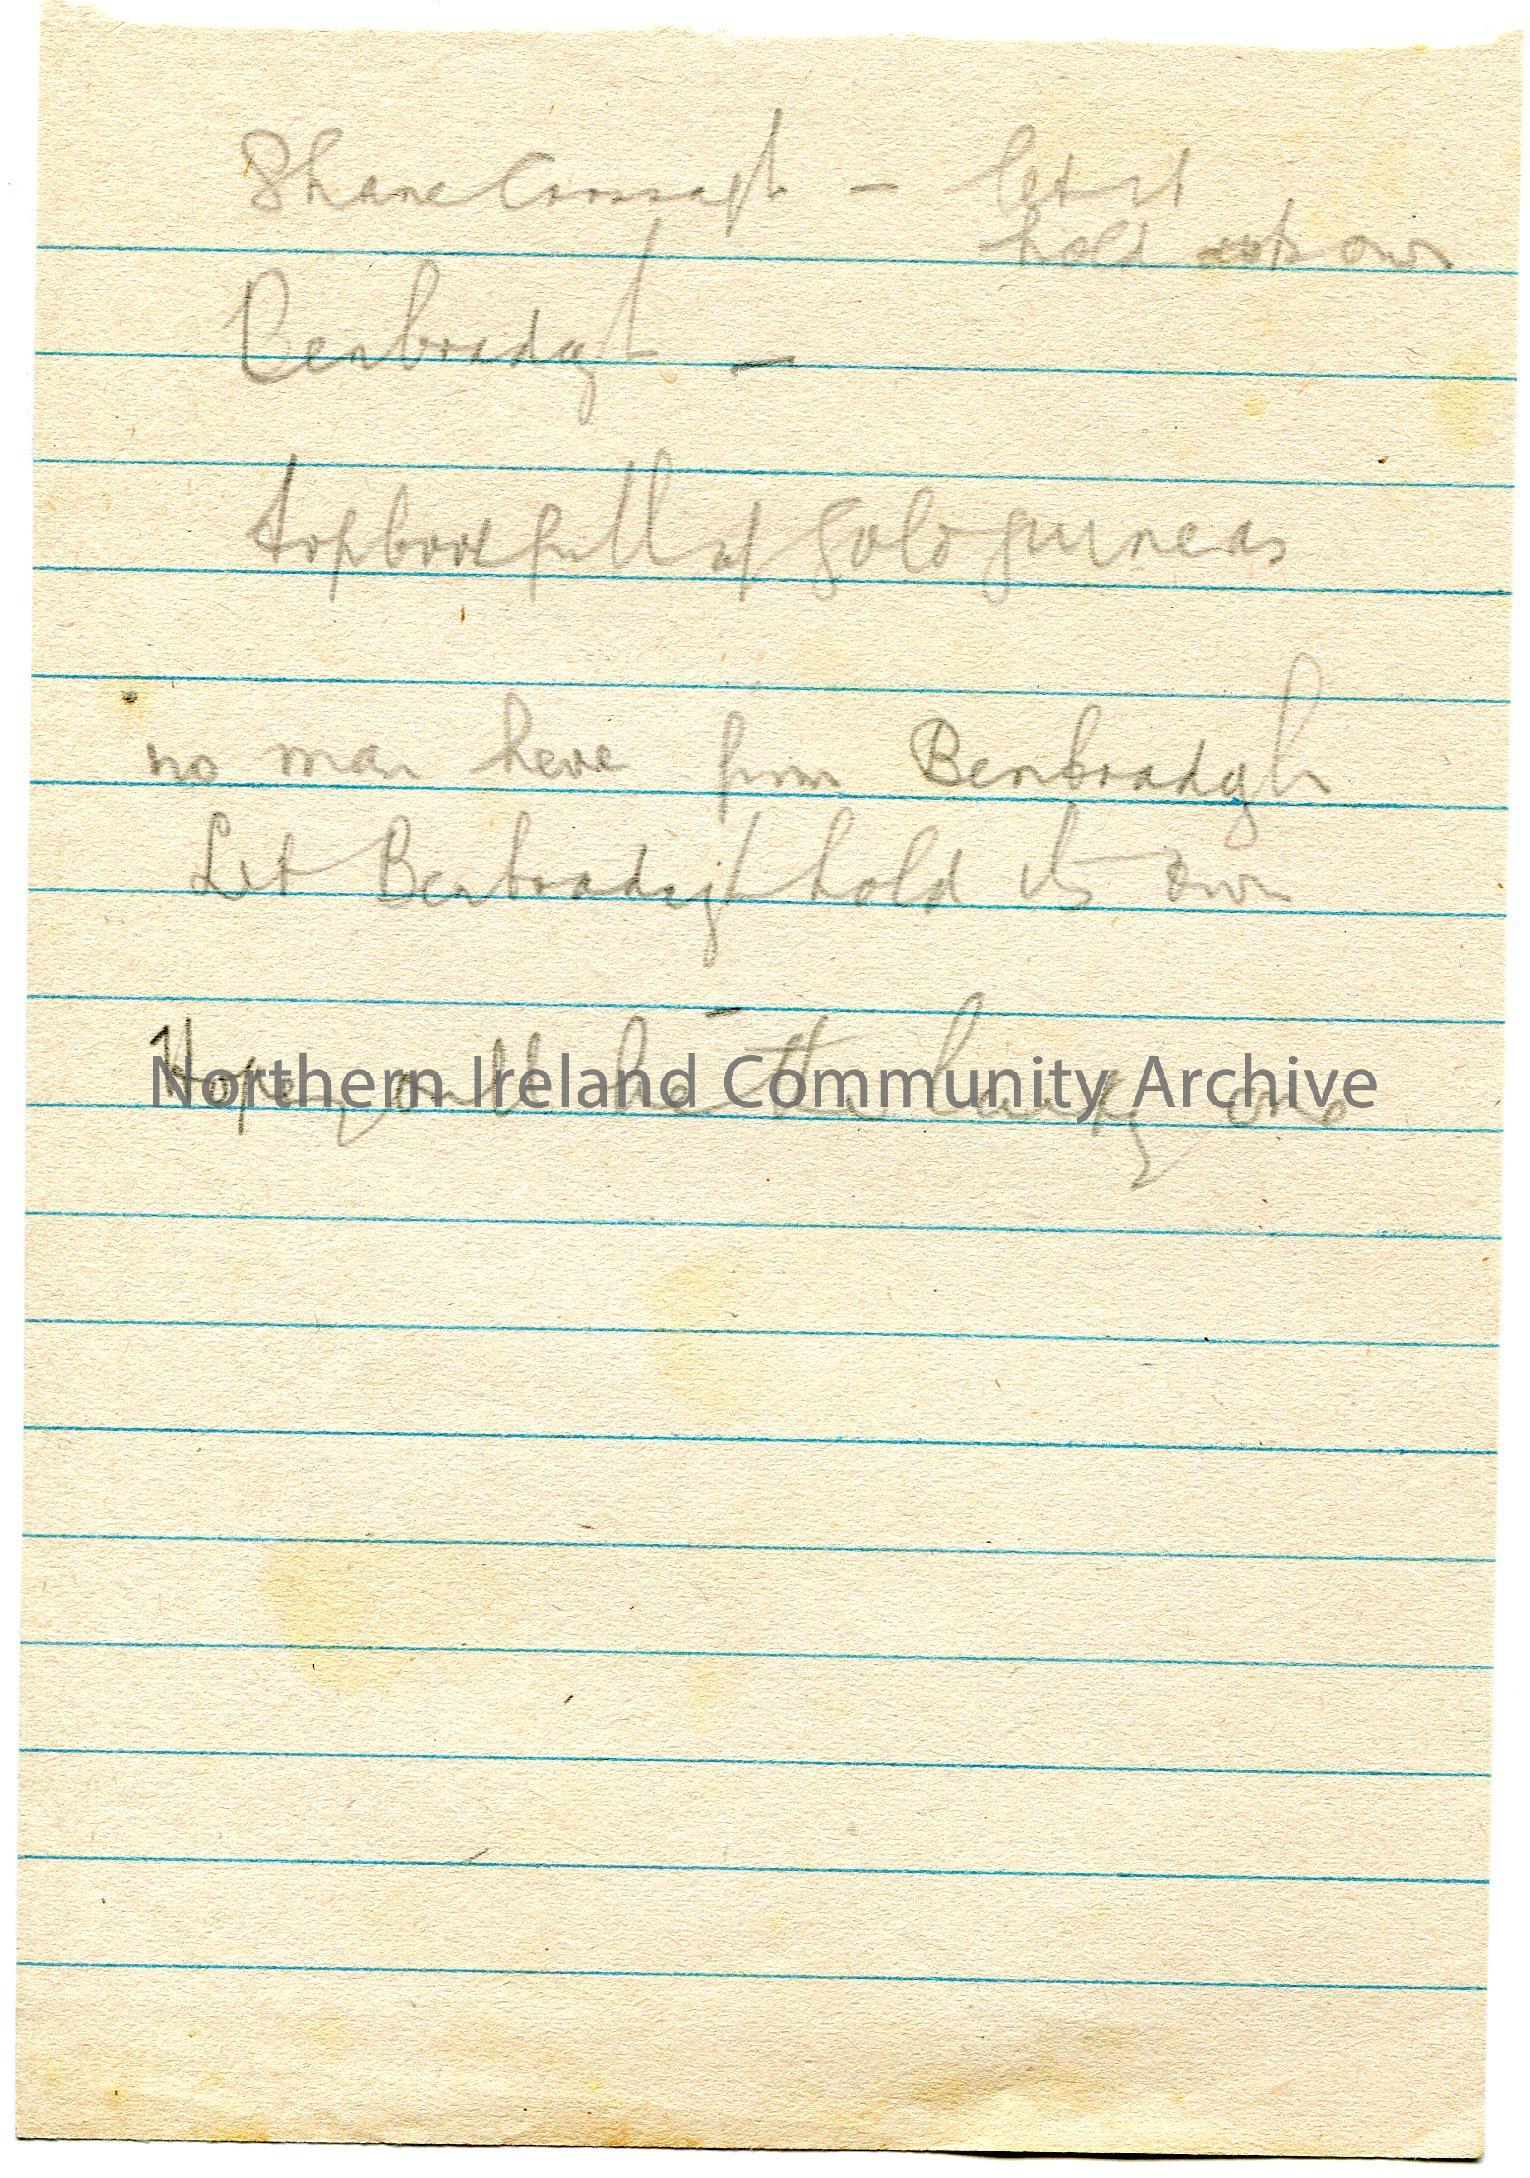 Shane Crossagh - let it
hold its own
Benbradagh -
topboot full of gold guineas
no man here from Benbradagh
Let Benbradagh hold its own
Hope you'll be the lucky one
Northern Ireland Community Archive